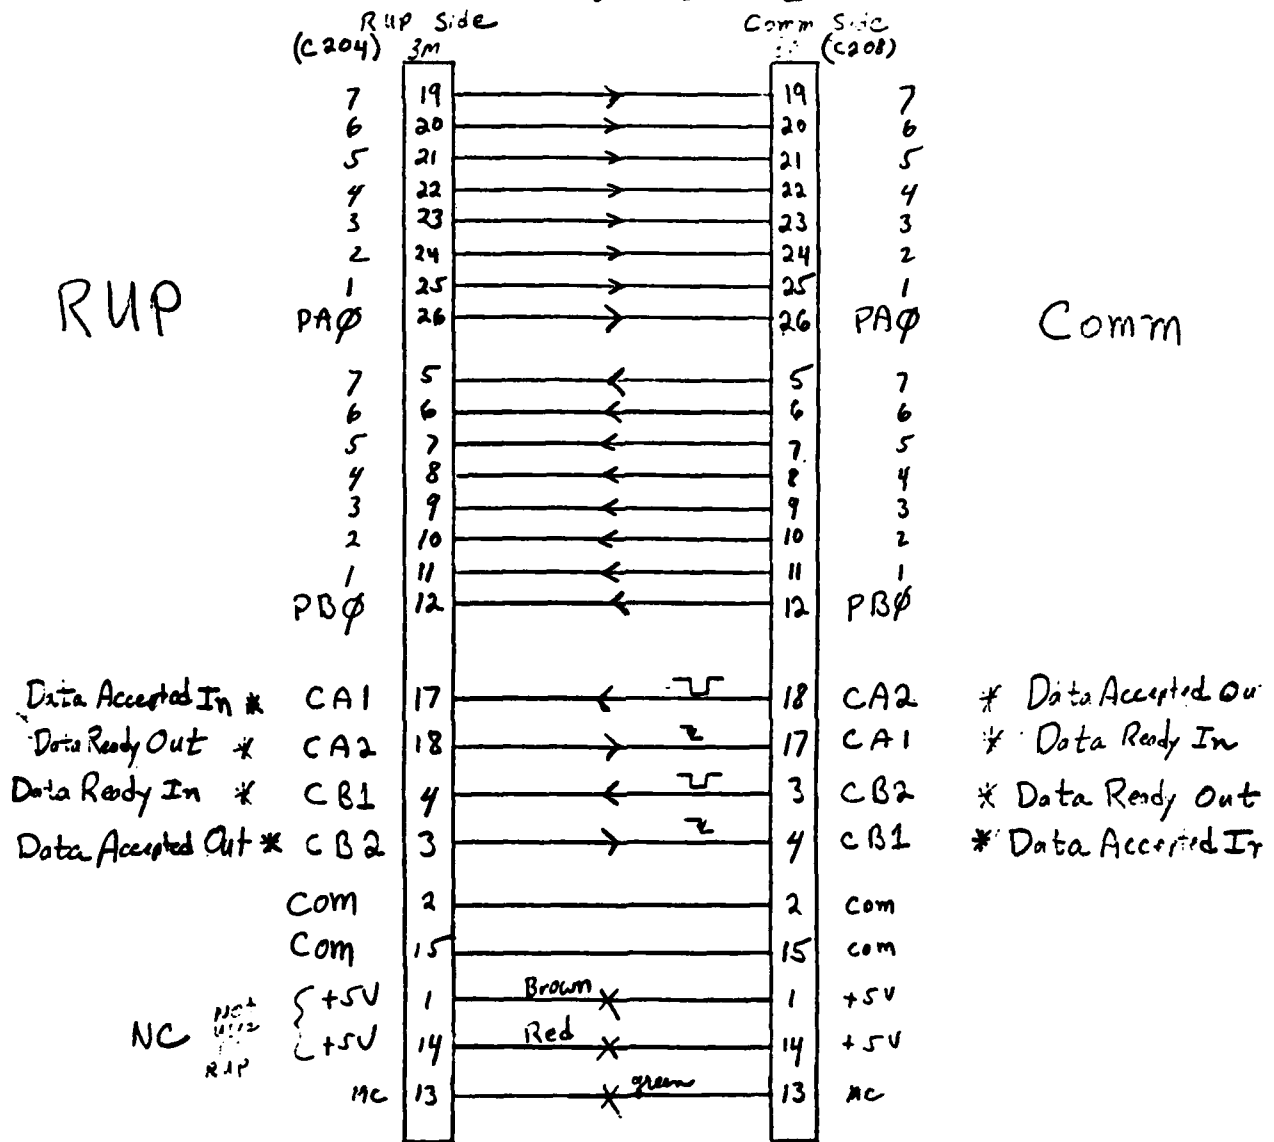 RUP Side Comm Side
(C204) 3M (C208)
7 19 19 7
6 20 20 6
5 21 21 5
4 22 22 4
3 23 23 3
2 24 24 2
1 25 25 1
RUP PAØ 26 26 PAØ Comm
7 5 5 7
6 6 6 6
5 7 7 5
4 8 8 4
3 9 9 3
2 10 10 2
1 11 11 1
PBØ 12 12 PBØ
Data Accepted In * CA1 17 18 CA2 * Data Accepted Ou
Data Ready Out * CA2 18 17 CA1 * Data Ready In
Data Ready In * CB1 4 3 CB2 * Data Ready Out
Data Accepted Out * CB2 3 4 CB1 * Data Accepted In
Com 2 2 Com
Com 15 15 com
+5V 1 Brown 1 +5V
NC +5V 14 Red 14 +5V
NC 13 green 13 NC